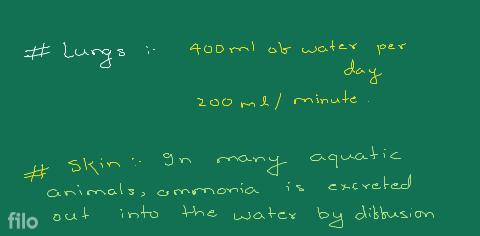 # Lungs :- 400ml of water per
day
200 ml/ minute.
# Skin :- In many aquatic
animals, ammonia is excreted
out into the water by dibbusion
filo